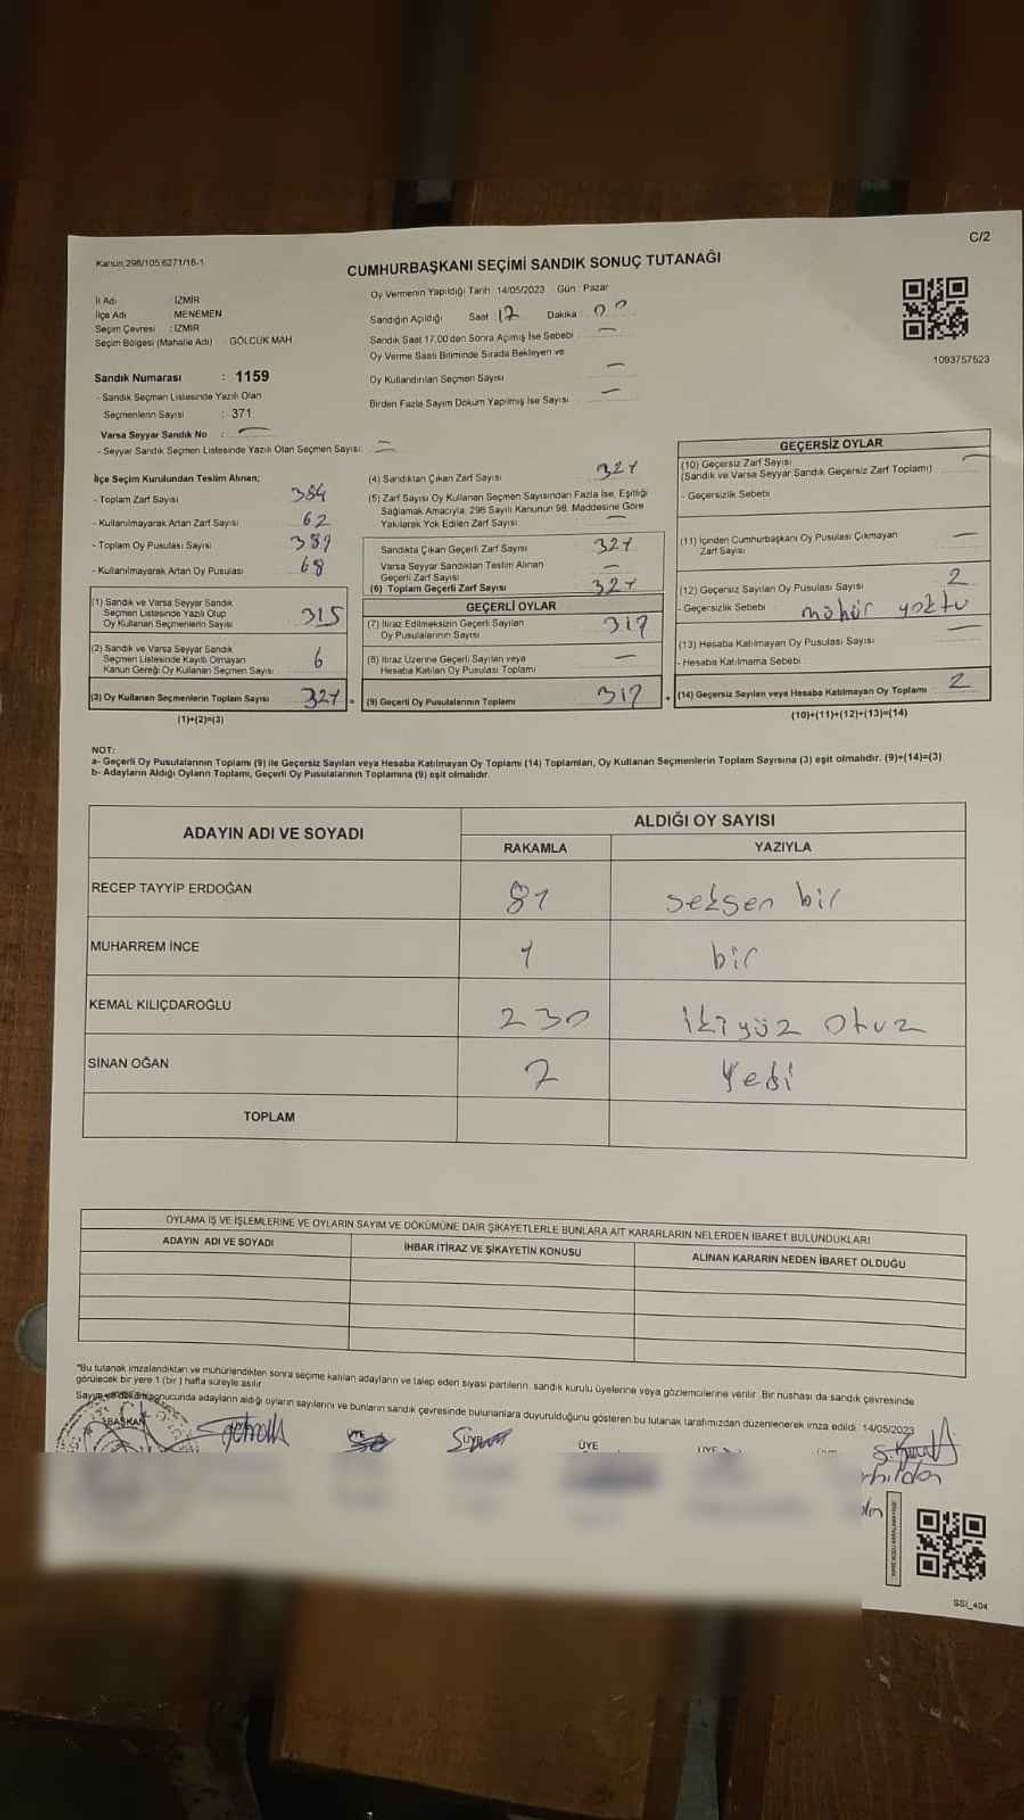 C/2
Kanun 298/105 6271/16-1
CUMHURBAŞKANI SEÇİMİ SANDIK SONUÇ TUTANAĞI
Oy Vermenin Yapıldığı Tarih 14/05/2023 Gün : Pazar
İl Adı İZMİR
İlçe Adı MENEMEN
Seçim Çevresi : İZMİR
Seçim Bölgesi (Mahalle Adı) : GÖLCÜK MAH
Sandığın Açıldığı Saat : 17 Dakika 00
Sandık Saat 17.00 den Sonra Açılmış İse Sebebi
Oy Verme Saati Bitiminde Sırada Bekleyen ve
Oy Kullandırılan Seçmen Sayısı
Birden Fazla Sayım Döküm Yapılmış İse Sayısı
1093757523
Sandık Numarası : 1159
- Sandık Seçmen Listesinde Yazılı Olan
Seçmenlerin Sayısı : 371
Varsa Seyyar Sandık No :
- Seyyar Sandık Seçmen Listesinde Yazılı Olan Seçmen Sayısı:
İlçe Seçim Kurulundan Teslim Alınan;
- Toplam Zarf Sayısı 384
- Kullanılmayarak Artan Zarf Sayısı 62
- Toplam Oy Pusulası Sayısı 389
- Kullanılmayarak Artan Oy Pusulası 68
(1) Sandık ve Varsa Seyyar Sandık
Seçmen Listesinde Yazılı Olup
Oy Kullanan Seçmenlerin Sayısı 315
(2) Sandık ve Varsa Seyyar Sandık
Seçmen Listesinde Kayıtlı Olmayan
Kanun Gereği Oy Kullanan Seçmen Sayısı 6
(3) Oy Kullanan Seçmenlerin Toplam Sayısı 321
(1)+(2)=(3)
(4) Sandıktan Çıkan Zarf Sayısı 321
(5) Zarf Sayısı Oy Kullanan Seçmen Sayısından Fazla İse, Eşitliği
Sağlamak Amacıyla, 298 Sayılı Kanunun 98. Maddesine Göre
Yakılarak Yok Edilen Zarf Sayısı
Sandıkta Çıkan Geçerli Zarf Sayısı 321
Varsa Seyyar Sandıktan Teslim Alınan
Geçerli Zarf Sayısı
(6) Toplam Geçerli Zarf Sayısı 321
GEÇERLİ OYLAR
(7) İtiraz Edilmeksizin Geçerli Sayılan
Oy Pusulalarının Sayısı 319
(8) İtiraz Üzerine Geçerli Sayılan veya
Hesaba Katılan Oy Pusulası Toplamı
(9) Geçerli Oy Pusulalarının Toplamı 319
GEÇERSİZ OYLAR
(10) Geçersiz Zarf Sayısı
(Sandık ve Varsa Seyyar Sandık Geçersiz Zarf Toplamı)
- Geçersizlik Sebebi
(11) İçinden Cumhurbaşkanı Oy Pusulası Çıkmayan
Zarf Sayısı
(12) Geçersiz Sayılan Oy Pusulası Sayısı 2
- Geçersizlik Sebebi mühür yoktu
(13) Hesaba Katılmayan Oy Pusulası Sayısı
- Hesaba Katılmama Sebebi
(14) Geçersiz Sayılan veya Hesaba Katılmayan Oy Toplamı 2
(10)+(11)+(12)+(13)=(14)
NOT:
a- Geçerli Oy Pusulalarının Toplamı (9) ile Geçersiz Sayılan veya Hesaba Katılmayan Oy Toplamı (14) Toplamları, Oy Kullanan Seçmenlerin Toplam Sayısına (3) eşit olmalıdır. (9)+(14)=(3)
b- Adayların Aldığı Oyların Toplamı, Geçerli Oy Pusulalarının Toplamına (9) eşit olmalıdır.
ADAYIN ADI VE SOYADI
ALDIĞI OY SAYISI
RAKAMLA YAZIYLA
RECEP TAYYİP ERDOĞAN 81 seksen bir
MUHARREM İNCE 1 bir
KEMAL KILIÇDAROĞLU 230 ikiyüz otuz
SİNAN OĞAN 7 Yedi
TOPLAM
OYLAMA İŞ VE İŞLEMLERİNE VE OYLARIN SAYIM VE DÖKÜMÜNE DAİR ŞİKAYETLERLE BUNLARA AİT KARARLARIN NELERDEN İBARET BULUNDUKLARI
ADAYIN ADI VE SOYADI İHBAR İTİRAZ VE ŞİKAYETİN KONUSU ALINAN KARARIN NEDEN İBARET OLDUĞU
*Bu tutanak imzalandıktan ve mühürlendikten sonra seçime katılan adayların ve talep eden siyasi partilerin sandık kurulu üyelerine veya gözlemcilerine verilir. Bir nüshası da sandık çevresinde
görülecek bir yere 1 (bir) hafta süreyle asılır
Sayım ve döküm sonucunda adayların aldığı oyların sayılarını ve bunların sandık çevresinde bulunanlara duyurulduğunu gösteren bu tutanak tarafımızdan düzenlenerek imza edildi. 14/05/2023
BAŞKAN ÜYE
SSİ_404